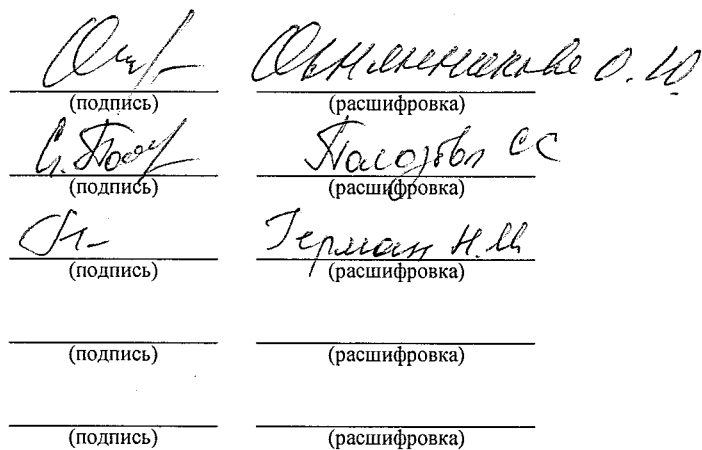 Овчинникова О.Ю.
(подпись) (расшифровка)
С.Пол Полозова СС
(подпись) (расшифровка)
Герман Н.М
(подпись) (расшифровка)
(подпись) (расшифровка)
(подпись) (расшифровка)